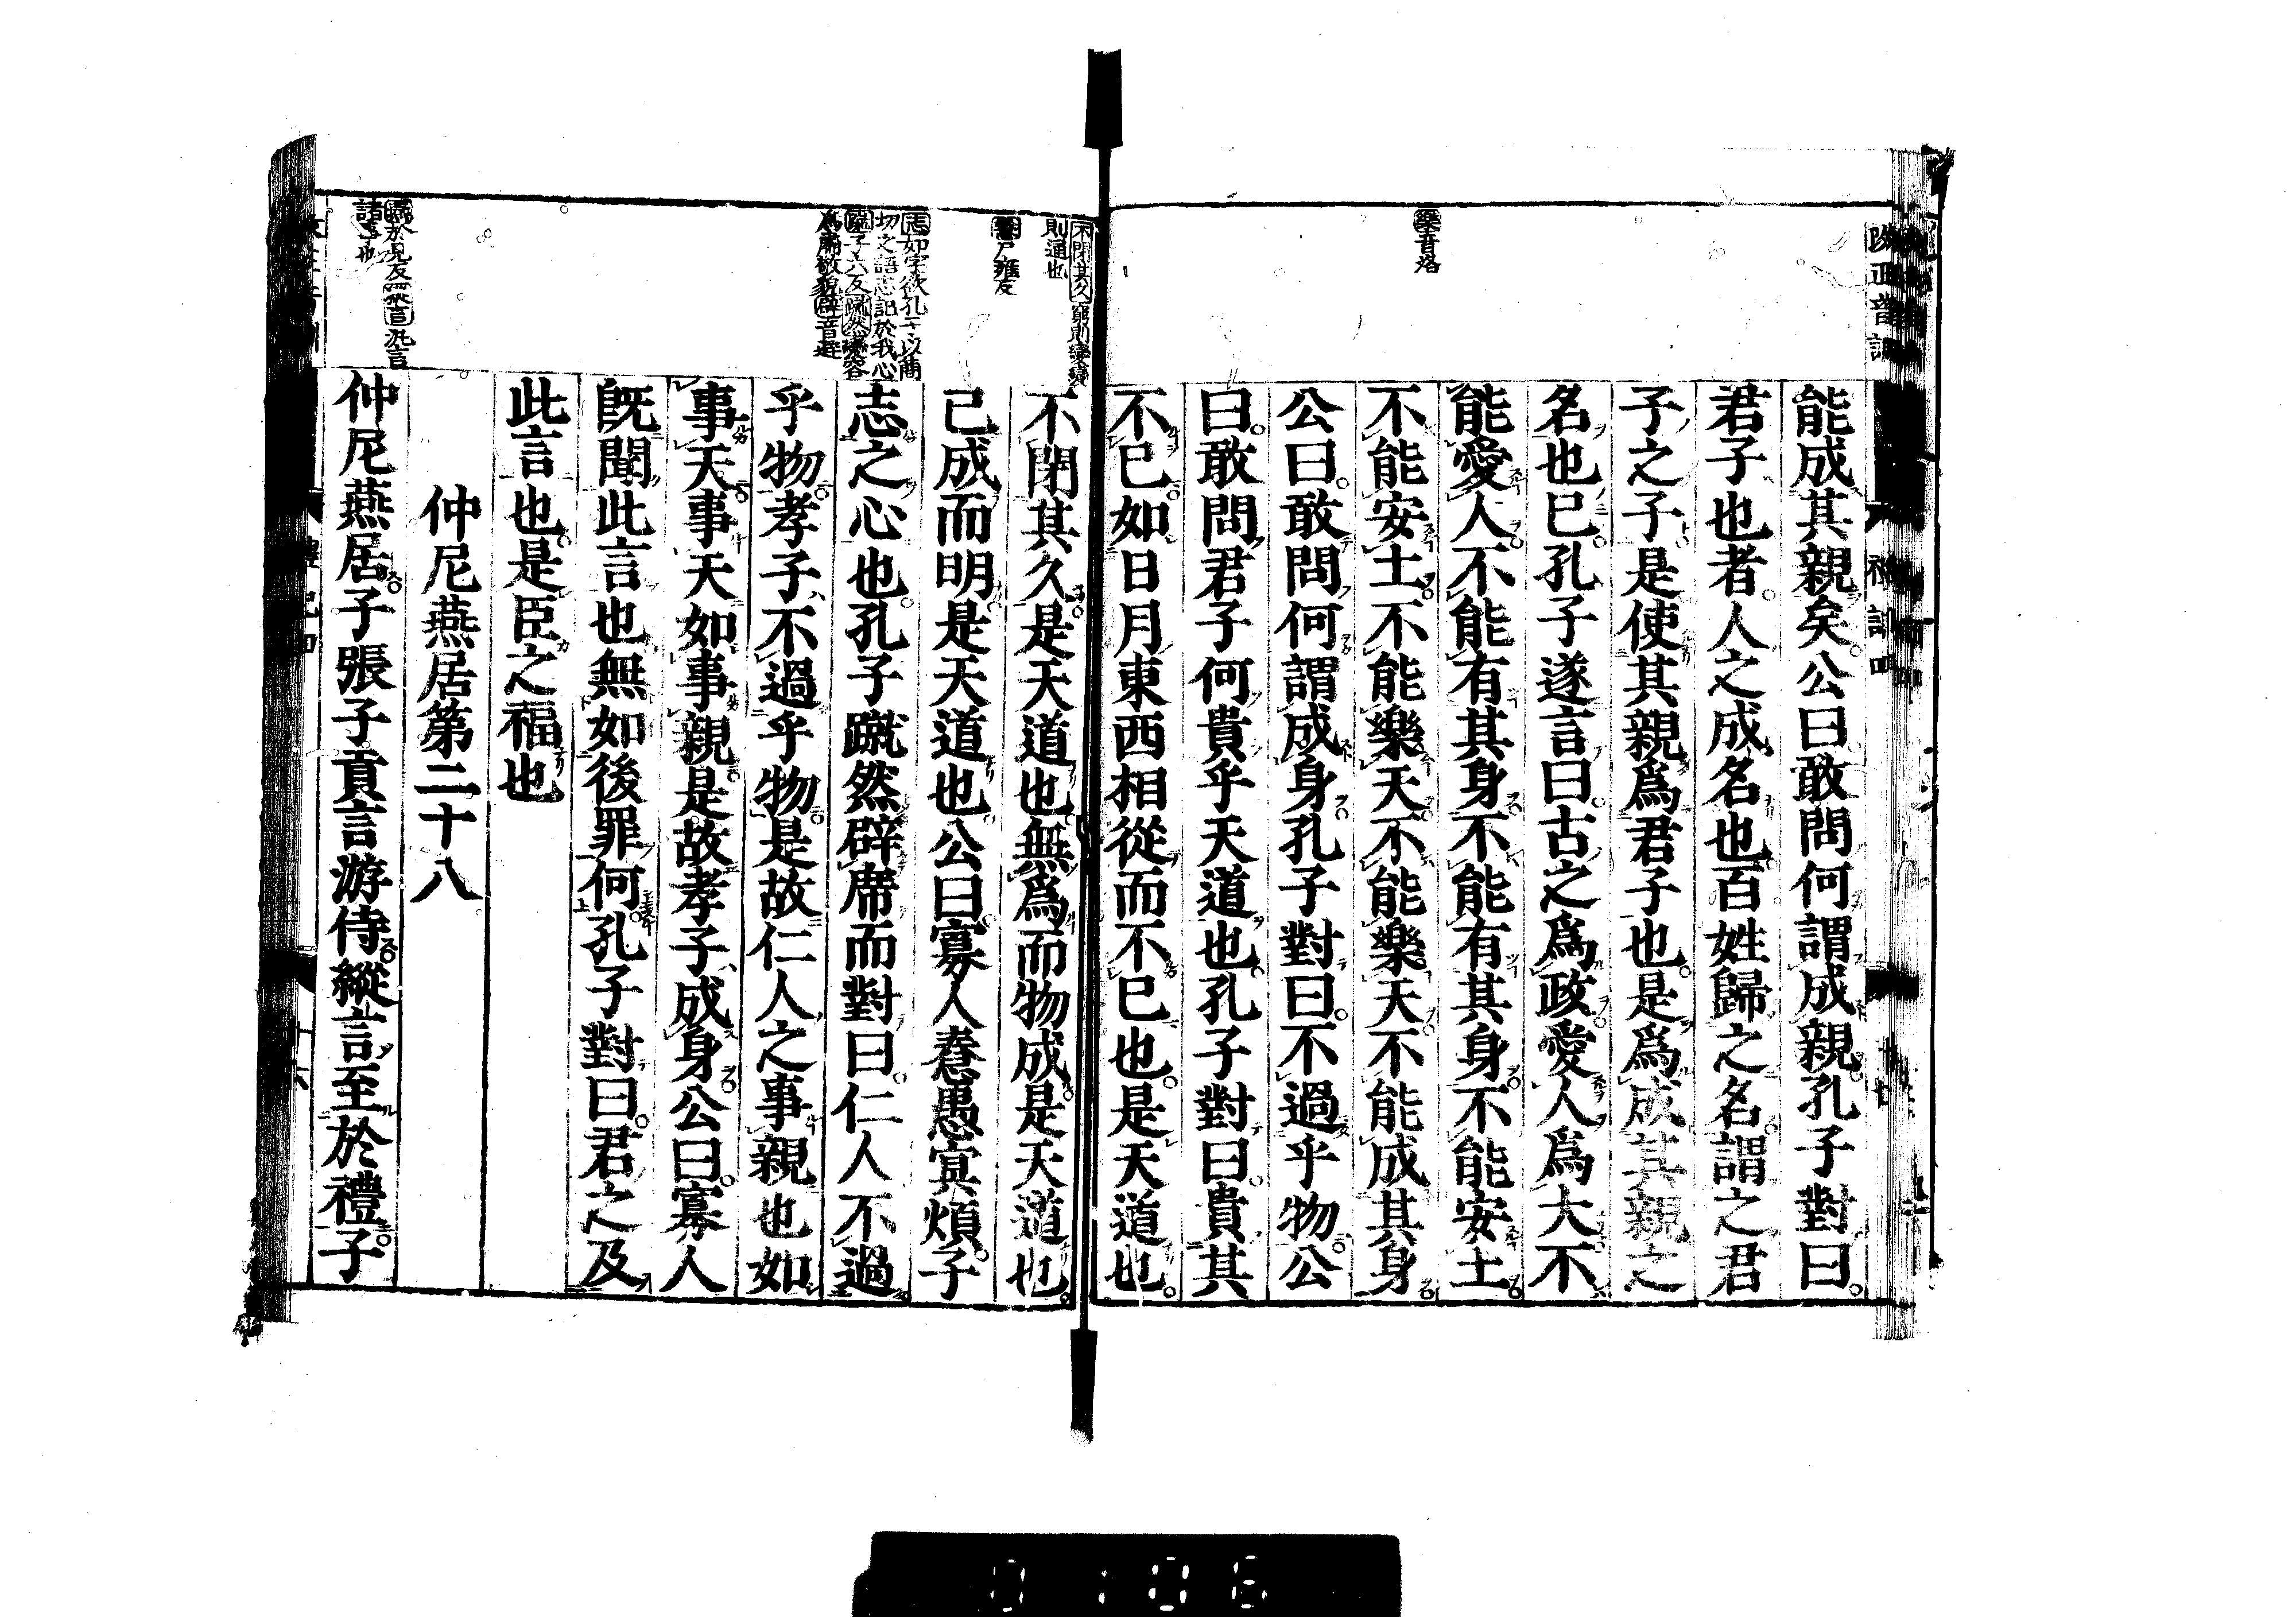 能成其親矣。公曰敢問何謂成親孔子對曰。
君子也者。人之成名也百姓歸之名。謂之君
子之子。是使其親爲君子也。是爲成其親之
名也已。孔子遂言曰。古之爲政。愛人爲大。不
能愛人。不能有其身。不能有其身。不能安土。
不能安土。不能樂天。不能樂天。不能成其身。
公曰。敢問何謂成身。孔子對曰。不過乎物。公
曰。敢問君子何貴乎天道也。孔子對曰。貴其
不已。如日月東西相從而不已也。是天道也。
不閉其久。是天道也。無爲而物成。是天道也。
已成而明。是天道也。公曰。寡人惷愚冥煩。子
志之心也。孔子蹴然辟席而對曰。仁人不過
乎物。孝子不過乎物。是故仁人之事親也如
事天。事天如事親。是故孝子成身。公曰。寡人
既聞此言也無如後罪何。孔子對曰。君之及
此言也。是臣之福也
仲尼燕居第二十八
仲尼燕居。子張子貢言游侍。縱言至於禮。子
樂音落
不閉其久 窮則變變
則通也
惷尸雍反
志如字欲孔子以簡
切之語志記於我心
蹴子六反 蹴然
爲肅敬貌 辟音避
禮記四